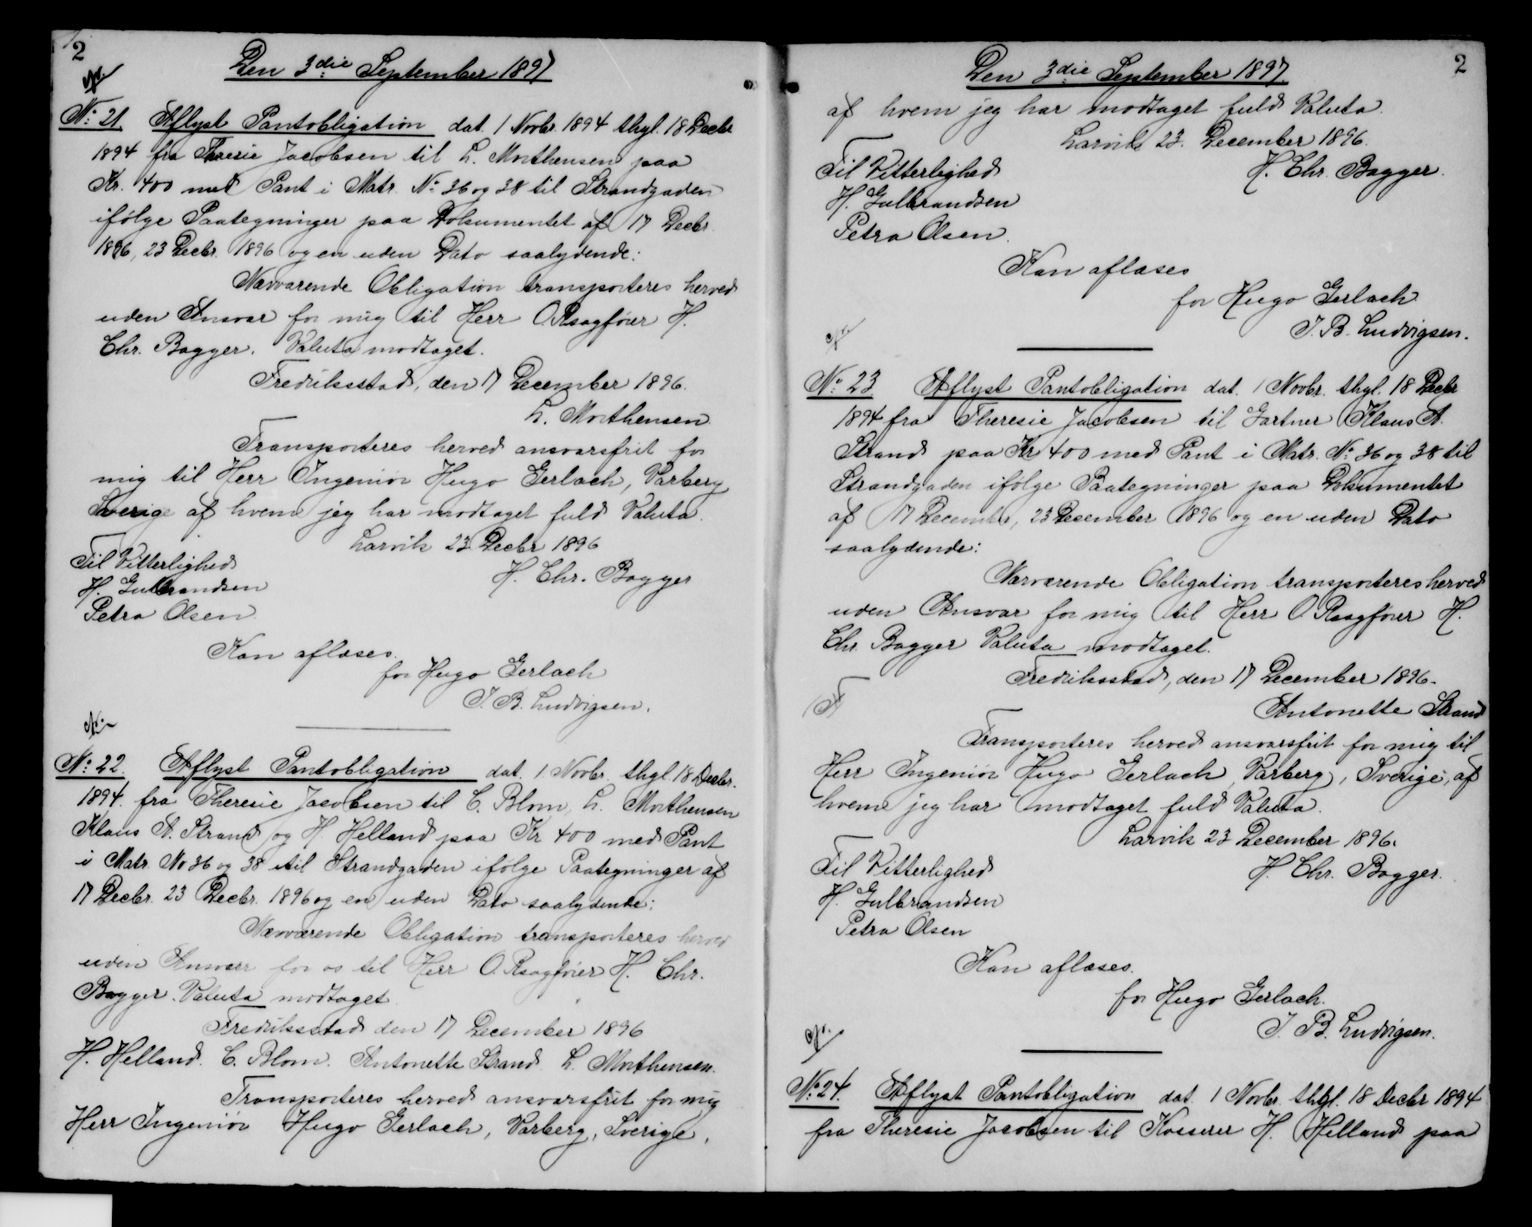 2
Den 3die September 1897
No: 21. Aflyst Pantobligation dat. 1 Novbr. 1894 thgl. 18 Decbr
1894 fra Theresie Jacobsen til L. Morthensen paa
Kr. 400 med Pant i Matr. No: 36 og 38 til Strandgaden
ifølge Paategninger paa Dokumentet af 17 Decbr.
1896, 23 Decbr. 1896 og en uden Dato saalydende:
Nærværende Obligation transporteres herved
uden Ansvar for mig til Herr O.Rsagfører H.
Chr. Bagger. Valuta modtaget.
Fredriksstad, den 17 December 1896.
L. Morthensen
Transporteres herved ansvarsfrit for
mig til Herr Ingeniør Hugo Gerlach, Varberg
Sverige af hvem jeg har modtaget fuld Valuta.
Larvik 23 Decbr 1896
Til Vitterlighed
H. Chr. Bagger
H. Gulbrandsen
Petra Olsen
Kan aflæses.
for Hugo Gerlach
J. B. Ludvigsen.
No: 22. Aflyst Pantobligation dat. 1 Novbr. thgl. 18 Decbr.
1894. fra Theresie Jacobsen til C. Blom, L. Morthensen
Klaus A. Strand og H. Helland paa Kr 400 med Pant
i Matr. No 36 og 38 til Strandgaden ifølge Paategninger af
17 Decbr. 23 Decbr. 1896 og en uden Dato saalydende:
Nærværende Obligation transporteres herved
uden Ansvar for os til Herr O.Rsagfører H. Chr.
Bagger. Valuta modtaget.
Fredriksstad den 17 December 1896
H. Helland. C. Blom. Antonette Strand L. Morthensen.
Transporteres herved ansvarsfrit for mig
Herr Ingeniør Hugo Gerlach, Varberg, Sverige,
2
Den 3die September 1897
af hvem jeg har modtaget fuld Valuta.
Larvik 23. December 1896.
Til Vitterlighed
H. Chr. Bagger.
H. Gulbrandsen
Petra Olsen.
Kan aflæses
for Hugo Gerlach
J. B. Ludvigsen.
No: 23 Aflyst Pantobligation dat. 1 Novbr. thgl. 18 Decbr
1894 fra Theresie Jacobsen til Gartner Klaus A.
Strand paa Kr 400 med Pant i Matr. No: 36 og 38 til
Strandgaden ifølge Paategninger paa Dokumentet
af 17 December, 23 December 1896 og en uden Dato
saalydende:
Nærværende Obligation transporteres herved
uden Ansvar for mig til Herr O.Rsagfører H.
Chr. Bagger Valuta modtaget.
Fredriksstad, den 17 December 1896.
Antonette Strand
Transporteres herved ansvarsfrit for mig til
Herr Ingeniør Hugo Gerlach Varberg, Sverige, af
hvem jeg har modtaget fuld Valuta.
Larvik 23 December 1896.
Til Vitterlighed
H. Chr. Bagger.
H. Gulbrandsen
Petra Olsen
Kan aflæses.
for Hugo Gerlach.
J. B. Ludvigsen.
No: 24. Aflyst Pantobligation dat. 1 Novbr. thgl. 18 Decbr 1894
fra Theresie Jacobsen til Kasserer H. Helland paa